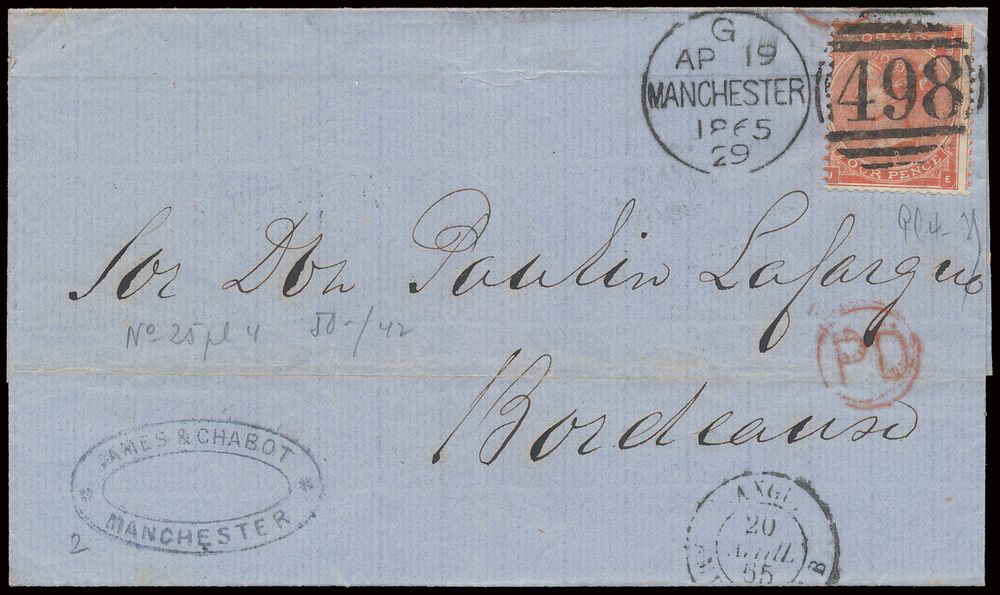 G
AP 19
MANCHESTER
1865
29
498
FOUR PENCE
J E
Sor Don Paulin Lafargue
No 25 pl 4 50-/42
PD
Bordeaux
JAMES & CHABOT
MANCHESTER
2
ANGL.
20
AVRIL
65
B